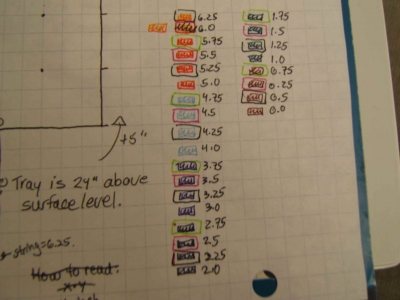 6.25
6.0
5.75
5.5
5.25
5.0
4.75
4.5
4.25
4.0
3.75
3.5
3.25
3.0
2.75
2.5
2.25
2.0
1.75
1.5
1.25
1.0
0.75
0.25
0.5
0.0
+5"
Tray is 24" above
surface level.
string=6.25.
How to read:
x-y